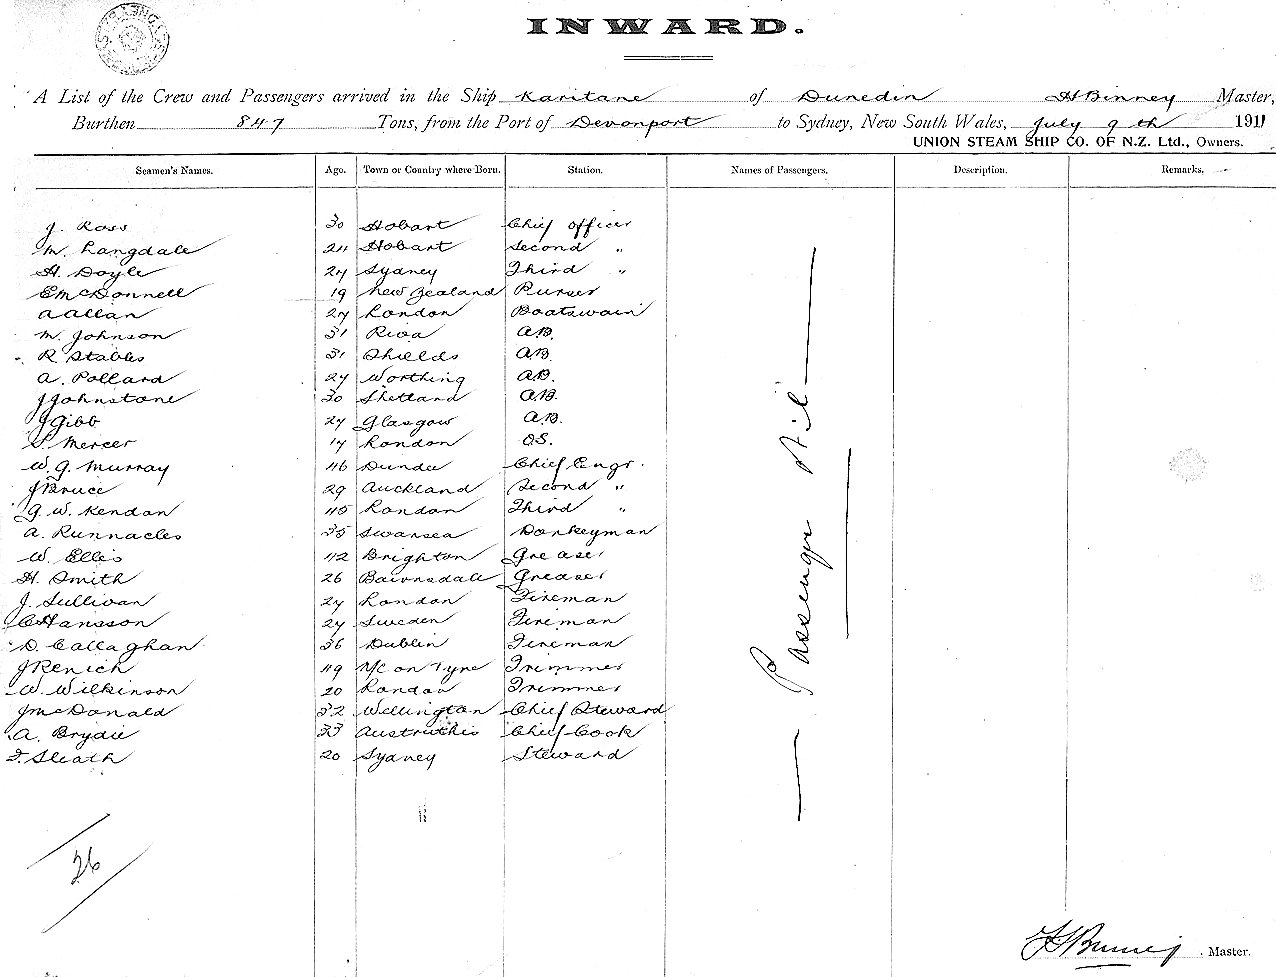 INWARD.
A List of the Crew and Passengers arrived in the Ship Karitane of Dunedin H Binney Master,
Burthen 847 Tons, from the Port of Devonport to Sydney, New South Wales, July 9th 1911
UNION STEAM SHIP CO. OF N.Z. Ltd., Owners.
Seamen's Names. Age. Town or Country where Born. Station. Names of Passengers. Description. Remarks.
J. Ross 30 Hobart Chief officer
M. Langdale 24 Hobart Second "
H. Doyle 24 Sydney Third "
E McDonnell 19 New Zealand Purser
A Allan 27 London Boatswain
M. Johnson 31 Riga A.B.
R Stables 31 Shields A.B.
A. Pollard 27 Worthing A.B.
J Johnstone 30 Shetland A.B.
J Gibb 27 Glasgow A.B.
S. Mercer 17 London OS.
W. G. Murray 46 Dundee Chief Engr.
J Bruce 29 Auckland Second "
G. W. Kendan 45 London Third "
A. Runnacles 35 Swansea Donkeyman
W. Ellis 42 Brighton Greaser
H. Smith 26 Bairnsdale Greaser
J. Sullivan 27 London Fireman
C Hansson 27 Sweden Fireman
D. Callaghan 36 Dublin Fireman
J Renich 49 N/C on Tyne Trimmer
W. Wilkinson 20 London Trimmer
J McDonald 32 Wellington Chief Steward
A. Brydie 33 Austruthie Chief Cook
F. Sleath 20 Sydney Steward
Passenger Nil
26
H Binney Master.